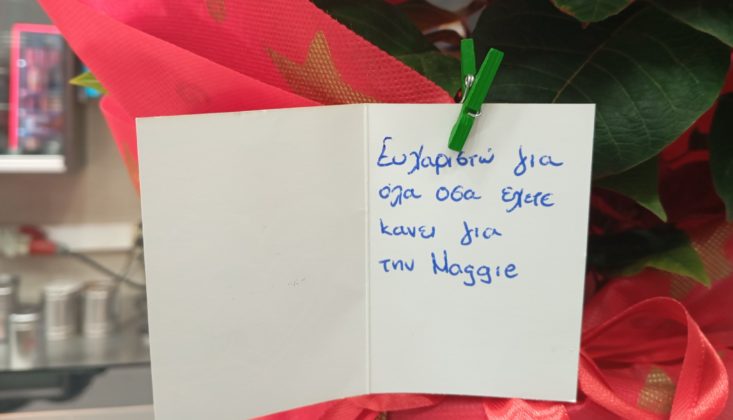 Ευχαριστώ για
όλα οσα εχετε
κανει για
την Maggie